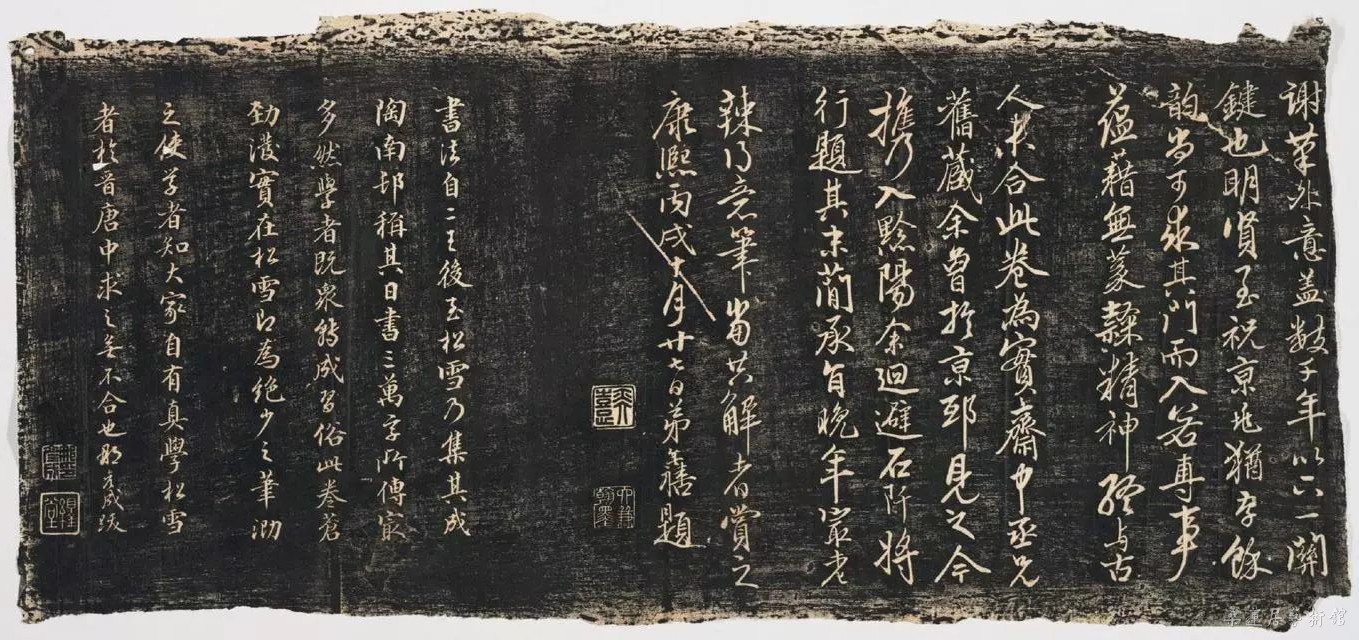 謝筆外意蓋數千年以來一關
鍵也明賢至祝京兆猶存餘
韻尚可求其門而入若專事
蘊藉無篆隸精神終與古
人未合此卷為實齋中丞兄
舊藏余曾於京邸見之今
攜入黔陽余迴避石阡將
行題其末簡承旨晚年最老
辣得意筆當共解者賞之
康熙丙戌十月廿七日弟善題
書法自二王後至松雪乃集其成
陶南邨稱其日書三萬字所傳最
多然學者既眾轉成習俗此卷蒼
勁潑實在松雪即為絕少之筆泐
之使學者知大家自有真學松雪
者於晉唐中求之無不合也成跋